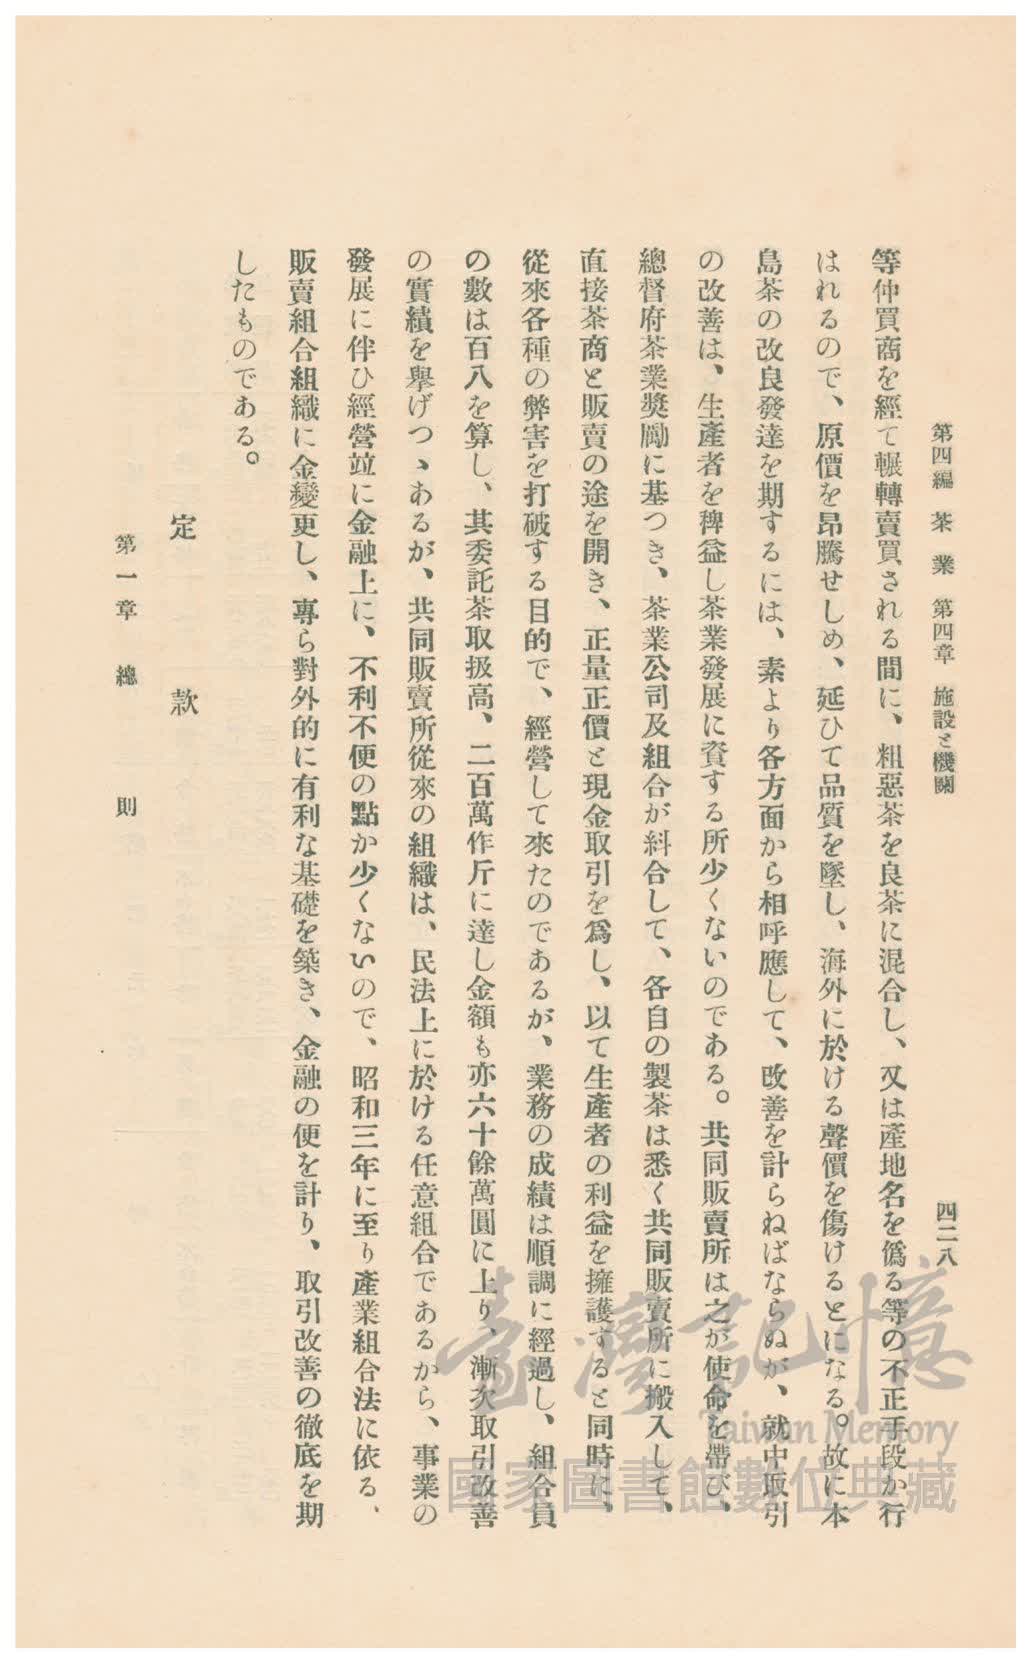 第四編 茶業 第四章 施設と機關
四二八
等仲買商を經て輾轉賣買される間に、粗惡茶を良茶に混合し、又は產地名を僞る等の不正手段か行
はれるので、原價を昂騰せしめ、延ひて品質を墜し、海外に於ける聲價を傷けるとになる。故に本
島茶の改良發達を期するには、素より各方面から相呼應して、改善を計らねばならぬが、就中取引
の改善は、生產者を稗益し茶業發展に資する所少くないのである。共同販賣所は之が使命を帶び、
總督府茶業獎勵に基つき、茶業公司及組合が糾合して、各自の製茶は悉く共同販賣所に搬入して、
直接茶商と販賣の途を開き、正量正價と現金取引を爲し、以て生產者の利益を擁護すると同時に、
從來各種の弊害を打破する目的で、經營して來たのであるが、業務の成績は順調に經過し、組合員
の數は百八を算し、其委託茶取扱高、二百萬作斤に達し金額も亦六十餘萬圓に上り、漸次取引改善
の實績を擧げつゝあるが、共同販賣所從來の組織は、民法上に於ける任意組合であるから、事業の
發展に伴ひ經營竝に金融上に、不利不便の點か少くないので、昭和三年に至り產業組合法に依る、
販賣組合組織に金變更し、專ら對外的に有利な基礎を築き、金融の便を計り、取引改善の徹底を期
したものである。
定款
第一章 總則
臺灣記憶
Taiwan Memory
國家圖書館數位典藏